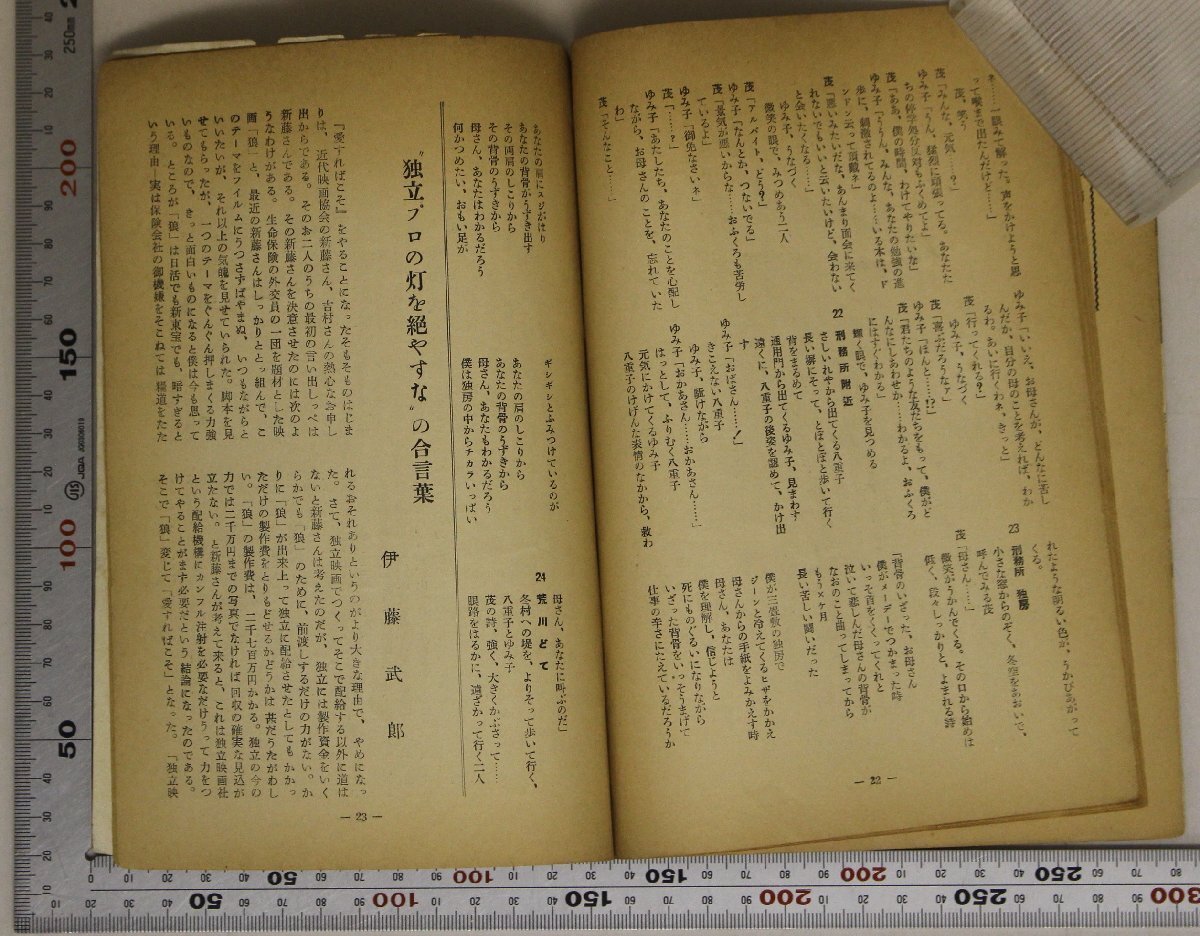 ネ……一眼みて解った。声をかけようと思
って喉まで出たんだけど……」
茂、笑う
茂「みんな、元気……？」
ゆみ子「うん、猛烈に頑張ってる。あなたた
ちの停学処分反対もふくめてよ」
茂「ああ、僕の時間、わけてやりたいな」
ゆみ子「ううん、みんな、あなたの勉強の進
歩に、刺激されてるのよ……いる本は、ド
ンドン云って頂戴ネ」
茂「悪いみたいだな、あんまり面会に来てく
れないでもいいと云いたいけど、会わない
と会いたくなる」
ゆみ子、うなづく
微笑の眼で、みつめあう二人
茂「アルバイト、どう？」
ゆみ子「なんとか、つないでる」
茂「景気が悪いからな……おふくろも苦労し
ているよ」
ゆみ子「御免なさいネ」
茂「……？」
ゆみ子「あたしたち、あなたのことを心配し
ながら、お母さんのことを、忘れていた
わ」
茂「そんなこと……」
ゆみ子「いいえ、お母さんが、どんなに苦し
んだか、自分の母のことを考えれば、わか
るわ。あいに行くわネ、きっと」
茂「行ってくれる？」
ゆみ子、うなづく
茂「喜ぶだろうなァ」
ゆみ子「ほんと……？」
茂「君たちのような友だちをもって、僕がど
んなにしあわせか……わかるよ、おふくろ
にはすぐわかる」
輝く眼で、ゆみ子を見つめる
22 刑務所附近
さしいれやから出てくる八重子
長い塀にそって、とぼとぼと歩いて行く
背をまるめて
通用門から出てくるゆみ子、見まわす
遠くに、八重子の後姿を認めて、かけ出
す
ゆみ子「おばさん……！」
きこえない八重子
ゆみ子、駈けながら
ゆみ子「おかあさん……おかあさん……」
はっとして、ふりむく八重子
元気にかけてくるゆみ子
八重子のけげんた表情のなかから、救わ
れたような明るい色が、うかびあがって
くる。
23 刑務所 独房
小さな窓からのぞく、冬空をあおいで、
呼んでみる茂
茂「母さん……」
微笑がうかんでくる。その口から始めは
低く、段々しっかりと、よまれる詩
「背骨のいざった、お母さん
僕がメーデーでつかまった時
いっそ首をくくってくれと
泣いて悲しんだ母さんの背骨が
なおのこと曲ってしまってから
もう×ケ月
長い苦しい闘いだった
僕が三畳敷の独房で
ジーンと冷えてくるヒザをかかえ
母さんからの手紙をよみかえす時
母さん、あなたは
僕を理解し、信じようと
死にものぐるいになりながら
いざった背骨をいっそうまげて
仕事の辛さにたえているだろうか
— 22 —
あなたの肩にスジがはり
あなたの背骨がうずき出す
その両肩のしこりから
その背骨のうずきから
母さん、あなたはわかるだろう
何かつめたい、おもい足が
ギシギシとふみつけているのが
あなたの肩のしこりから
あなたの背骨のうずきから
母さん、あなたもわかるだろう
僕は独房の中からチカラいっぱい
母さん、あなたに叫ぶのだ」
24 荒川どて
冬村への堤を、よりそって歩いて行く、
八重子とゆみ子
茂の詩、強く、大きくかぶさって……
眼路をはるかに、遠ざかって行く二人
〝独立プロの灯を絶やすな〟の合言葉
伊藤武郎
『愛すればこそ』をやることになったそもそものはじま
りは、近代映画協会の新藤さん、吉村さんの熱心なお申し
出からである。そのお二人のうちの最初の言い出しっぺは
新藤さんである。その新藤さんを決意させたのには次のよ
うなわけがある。生命保険の外交員の一団を題材とした映
画「狼」と、最近の新藤さんはしっかりととっ組んで、こ
のテーマをフィルムにうつさずばやまぬ、いつもながらと
いいたいが、それ以上の気魄を見せていられた。脚本を見
せてもらったが、一つのテーマをぐんぐん押しまくる力強
いものなので、きっと面白いものになると僕は今も思って
いる。ところが「狼」は日活でも新東宝でも、暗すぎると
いう理由—実は保険会社の御機嫌をそこねては糧道をたた
れるおそれありというのがより大きな理由で、やめになっ
た。さて、独立映画でつくってそこで配給する以外に道は
ないと新藤さんは考えたのだが、独立には製作資金をいく
らかでも「狼」のために、前渡しするだけの力がない。か
りに「狼」が出来上って独立に配給させたとしてもかかっ
ただけの製作費をとりもどせるかどうかは甚だうたがわし
い。「狼」の製作費は、二千七百万円かかる。独立の今の
力では二千万円までの写真でなければ回収の確実な見込が
立たない。と新藤さんが考えて来ると、これは独立映画社
という配給機構にカンフル注射を必要なだけうって力をつ
けてやることがまず必要だという結論になったのである。
そこで「狼」変じて「愛すればこそ」となった。「独立映
— 23 —